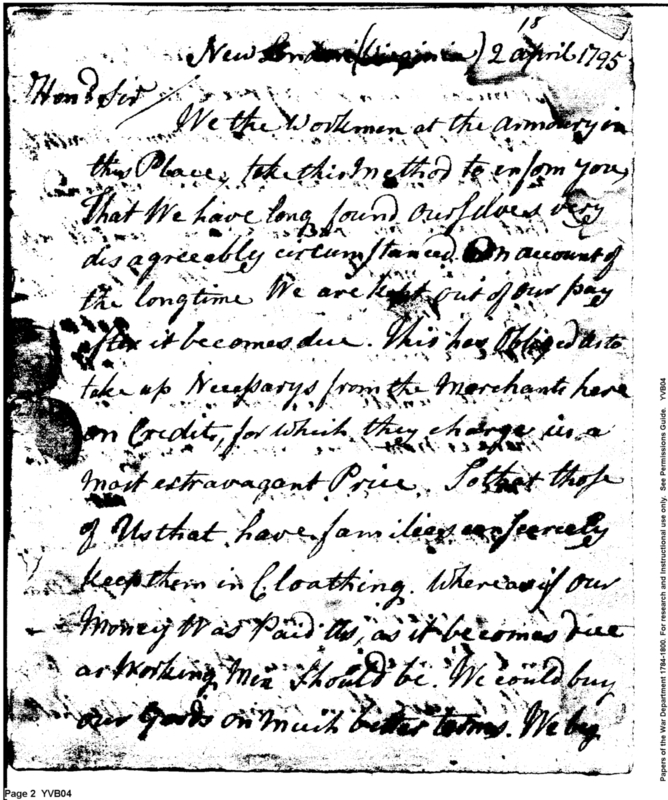 18
New London (Virginia) 2 april 1795
Hond Sir
We the Workmen at the armoury in
this Place, take this Method to inform you,
That We have long found Ourselves very
disagreeably circumstanced On account of
the longtime We are kept out of our pay
after it becomes due. This has Obliged us to
take up Necessarys from the Merchants here
on Credit, for which they charge us a
most extravagant Price. So that those
of Us that have families can scarcely
keep them in Cloathing. Whereas if our
Money Was Paid Us, as it becomes due
as Working Men Should be. We could buy
our Goods on much better terms. We beg
Page 2 YVB04
Papers of the War Department 1784-1800. For research and Instructional use only. See Permissions Guide. YVB04